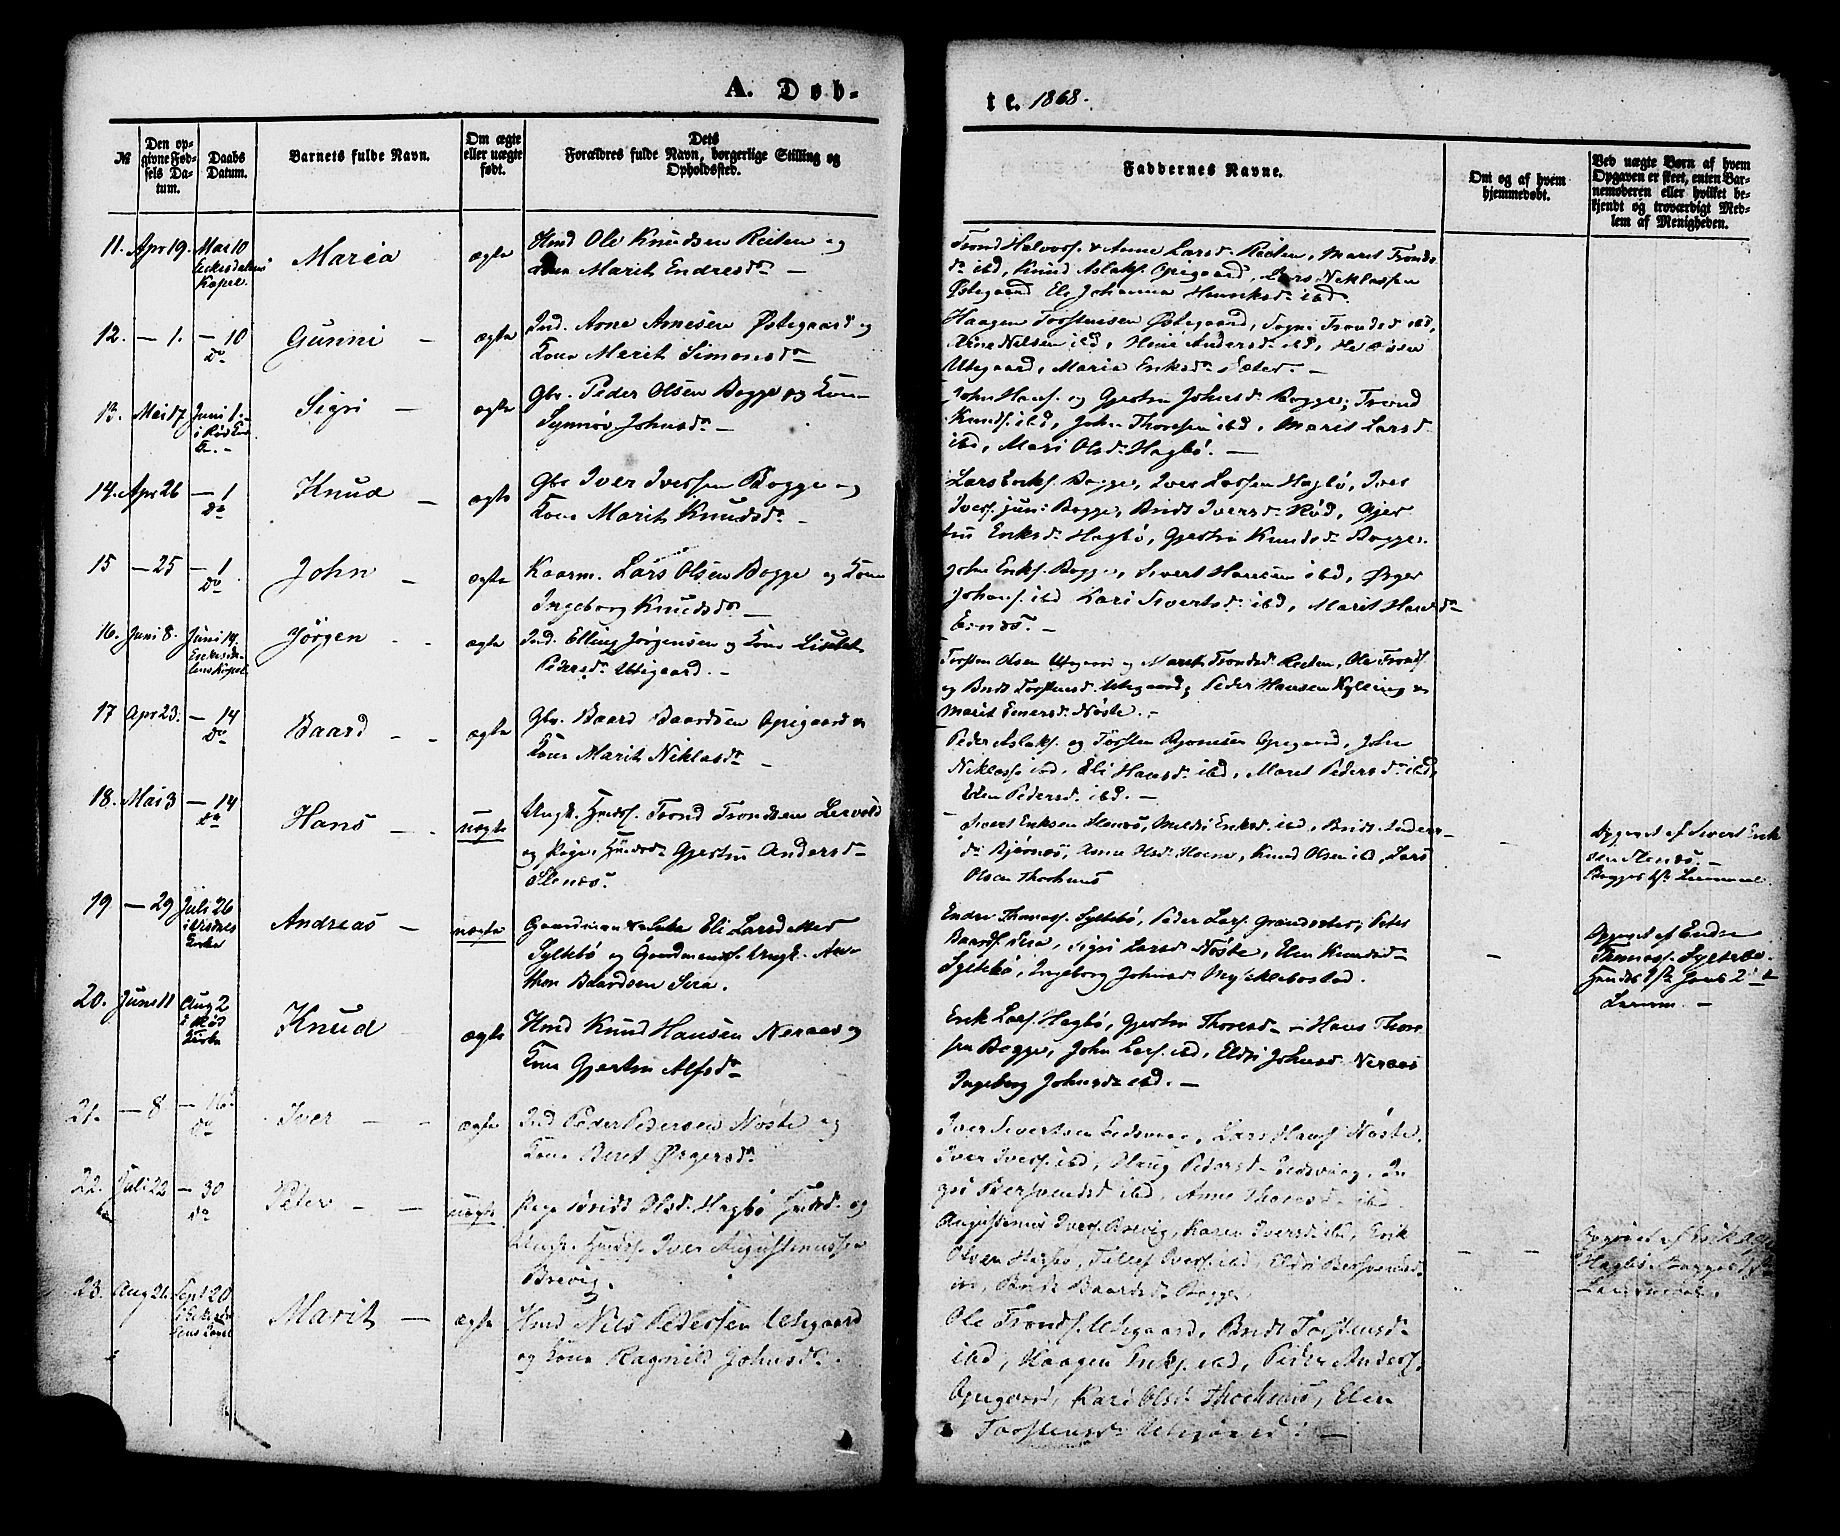 A. Døb-
te. 1868.
№
Den op-
givne Fød-
sels Da-
tum.
Daabs
Datum.
Barnets fulde Navn.
Om ægte
eller uægte
født.
Dets
Forældres fulde Navn, borgerlige Stilling og
Opholdssted.
Faddernes Navne.
Om og af hvem
hjemmedøbt.
Ved uægte Børn af hvem
Opgaven er skeet, enten Bar-
nemoderen eller hvilket be-
kjendt og troværdigt Med-
lem af Menigheden.
11. Apr 19. Mai 10
Kapel.
Maria
ægte
Hmd Ole Knudsen Reiten og
Kone Marit Endresdr
Trond Halvors. & Anne Larsd Reiten, Marit Tronds
dr ibd, Knud Aslaks. Opegaard, Lars Niklassen
Østegaard Johanna Henriksdr ibd.
12. — 1. — 10
do
Gunni —
ægte
Ind. Arne Arnesen Østegaard og
Kone Marit Simonsdr
Haagen Torstensen Østegaard, Trondsd ibd,
Arne Nelsen ibd, Andersd ibd, Ole
Utegaard, Maria Eriksd
13. Mai 17 Juni 1.
i Rød
Sigri —
ægte
Gbr. Peder Olsen Bogge og Kone
Synnøv Johnsdr —
John Hans. og Gjertru Johnsd Bogge, Trond
Knuds. ibd, John Thoresen ibd, Marit Larsd
ibd, Mari Olsd Hagbø. —
14. Apr 26 — 1
do
Knud —
ægte
Gbr Iver Iversen Bogge og
Kone Marit Knudsdr —
Lars Eriks. Bogge, Iver Larsen Hagbø, Iver
Ivers. jun. Bogge, Brit Iversd Rød, Gjer
tru Eriksd Hagbø, Gjertru Knudsd Bogge.
15 — 25 — 1
do
John —
ægte
Kaarm. Lars Olsen Bogge og Kone
Ingeborg Knudsdr —
John Eriks. Bogge, Sivert Hansen ibd, Ørger
Johans. ibd Kari Sivertsd ibd, Marit Hansdr
16. Juni 8. Juni 14.
Jørgen —
ægte
Ind. Elling Jørgensen og Kone
Pedersdr Utigaard. —
Torsten Olsen Utegaard og Marit Trondsd Reiten, Ole Tronds.
og Brit Torstensd Utegaard, Peder Hansen Kylling &
Marit Einersd Nøste. —
17 Apr 23. — 14
do
Baard — -
ægte
Gbr. Baard Baardsen Opigaard &
Kone Marit Niklasdr —
Peder Aslaks. og Torsten Opegaard, John
Niklass. ibd, Eli Hansd ibd, Marit Pedersd ibd,
Elen Pedersd ibd. —
18. Mai 3 — 14
do
Hans — -
uægte
Ungk. Trond Trondsen Lervold
og Pige Gjertru Andersd
Stenæs.
Sivert Eriksen Stenæs, Eriksd ibd, Brit Anders
Anne Olsd Knud Olsen ibd, Lars
Olsen
—
Opgivet af Sivert Erik
sen Stenæs. —
19 — 29 Juli 26
Andreas —
uægte
Eli Larsdatter
Syltebø og Ungk. An-
thon Baardsen Sira.
Endre Thomass. Syltebø, Peder Lars. Peter
Baards. Sira, Sigri Larsd Nøste, Elen Knudsd
Syltebø, Ingeborg Johnsd Myklebostad.
—
Opgivet af Endre
Thomass. Syltebø
20. Juni 11 Aug 2
i Rød
Kirke
Knud
ægte
Hmd Knud Hansen Neraas og
Kone Gjertru Alfsdr
Erik Lars. Hagbø, Gjertru Thoresd — Hans Thore
sen Bogge, John Lars. ibd, Eldri Johnsd Neraas
Ingeborg Johnsd ibd. —
21. — 8 — 16
do
Iver — -
ægte
Ind Peder Pedersen Nøste og
Kone Beret Ørgersdr
Iver Sivertsen Eidsvaag, Lars Hans. Nøste,
Iver Ivers. ibd, Haug Pedersd Eidsvaag, In
Bersvendsd ibd, Anne Thoresd ibd.
22. Juli 22 — 30
do
Peter — —
uægte
Pige Brit Olsd Hagbø og
Ungk. Iver Augustinussen
Brevig.
Augustinus Ivers. Brevig, Karen Iversd ibd, Erik
Olsen Hagbø, Ivers. ibd, Eldri Bersvendsd
ibd, Brit Baardsd Bogge.
— —
Opgivet af Erik
Hagbø
23. Aug 26. Sept 20
Marit —
ægte
Hmd Nils Pedersen Utigaard
og Kone Ragnild Johnsdr.
Ole Tronds. Utigaard, Brit Torstensd
ibd, Haagen Eriks. ibd, Peder Anders.
Opigaard, Kari Olsd Elen
Torstensd Utigaard. —